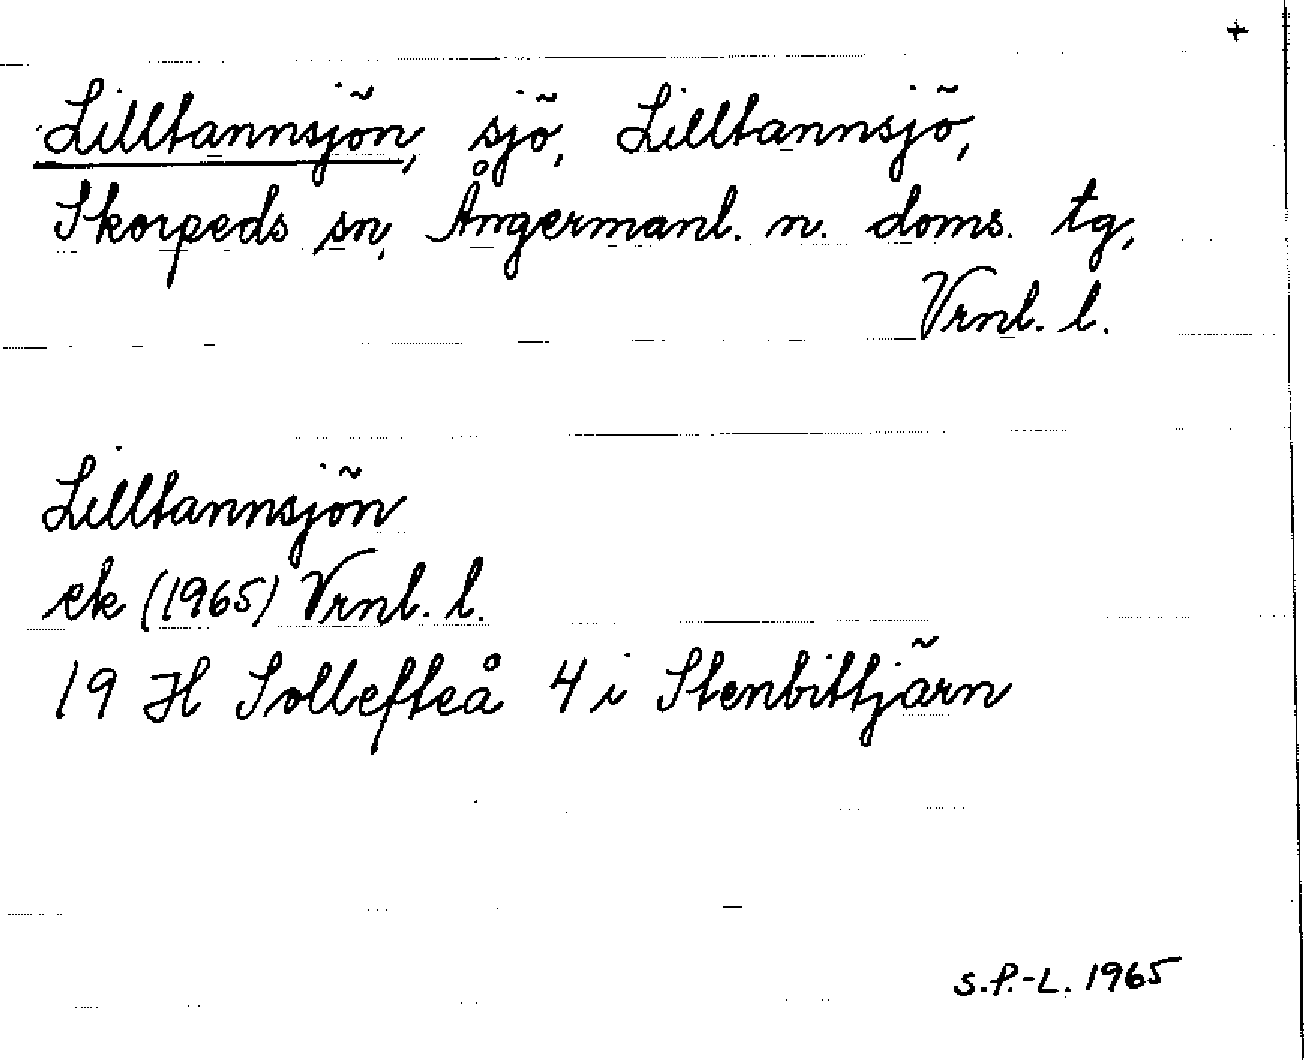 +
Lilltannsjön, sjö, Lilltannsjö,
Skorpeds sn, Ångermanl. n. doms. tg,
Vrnl. l.
Lilltannsjön
ek (1965) Vrnl. l.
19 H Sollefteå 4 i Stenbittjärn
S.P.-L. 1965